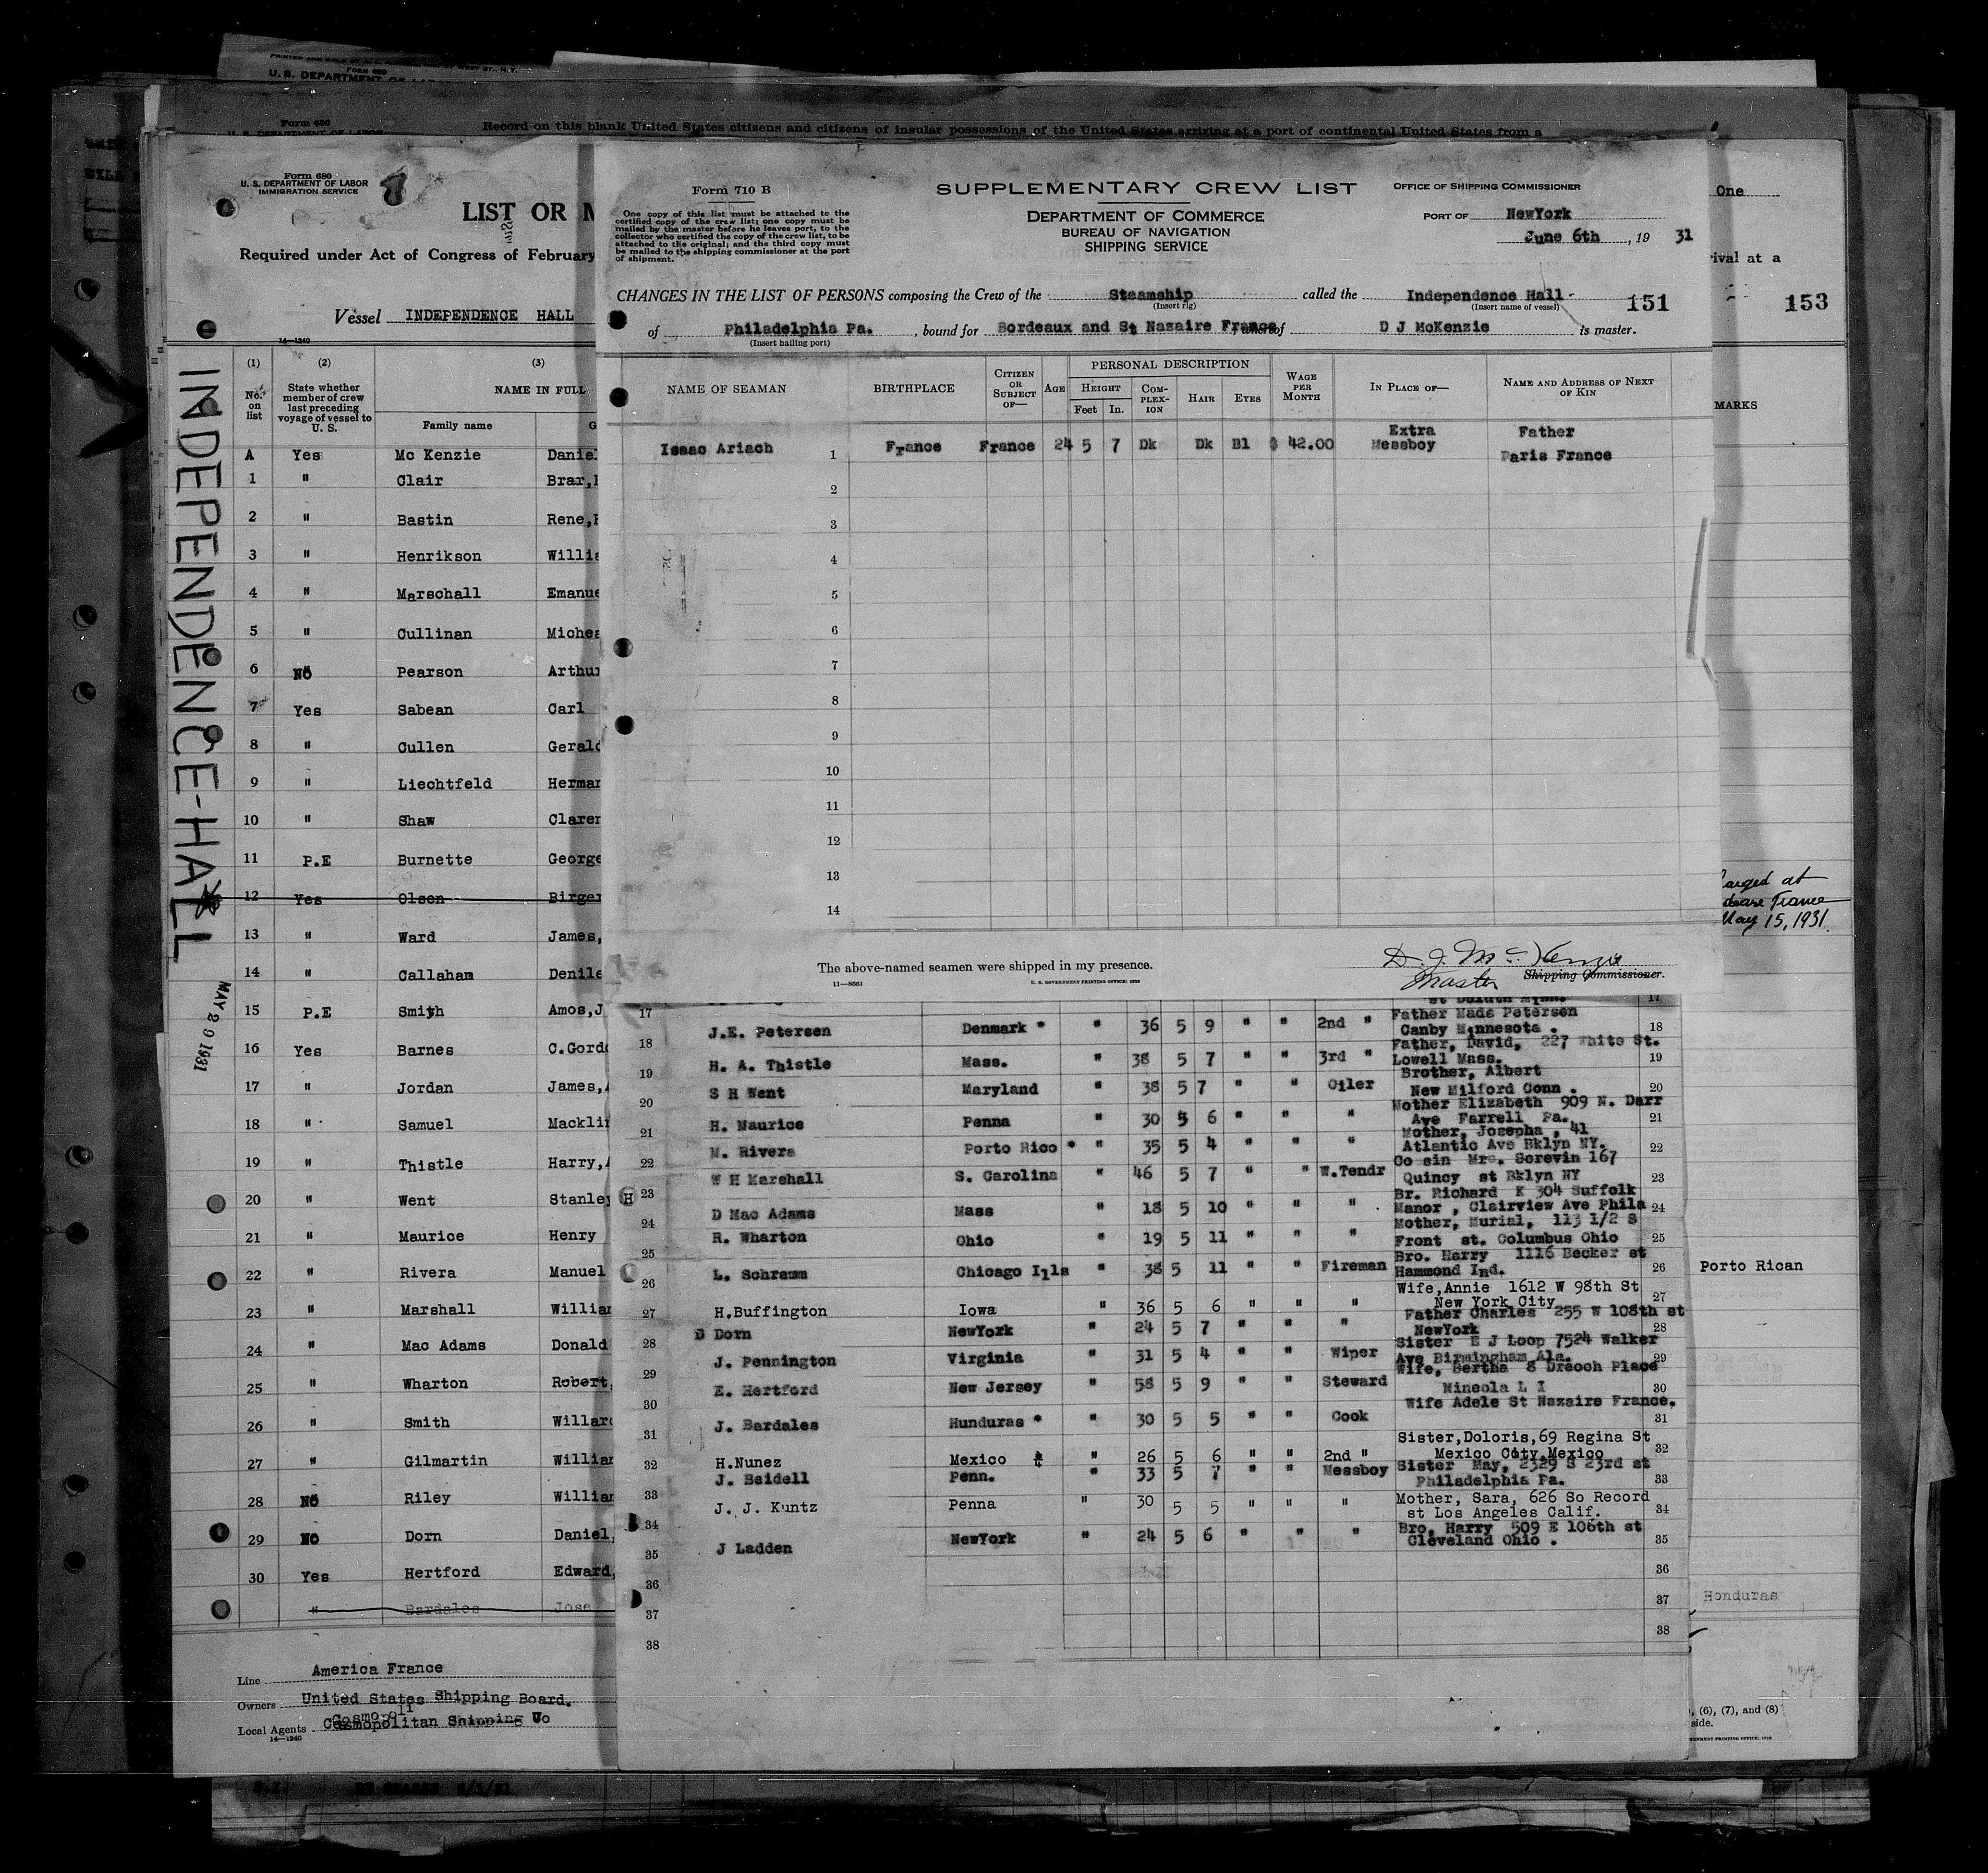 U. S. DEPARTMENT OF
Form 680
Record on this blank United States citizens and citizens of insular possessions of the United States arriving at a port of continental United States from a
Form 680
U. S. DEPARTMENT OF LABOR
IMMIGRATION SERVICE
LIST OR M
Required under Act of Congress of February
Vessel INDEPENDENCE HALL
14—1240
INDEPENDENCE-HALL
MAY 29 1931
(1) (2) (3)
No. on list
State whether member of crew last preceding voyage of vessel to U. S.
NAME IN FULL
Family name G
A Yes Mc Kenzie Daniel
1 " Clair Brar,
2 " Bastin Rene,
3 " Henrikson Willia
4 " Marschall Emanue
5 " Cullinan Michea
6 No Pearson Arthur
7 Yes Sabean Carl
8 " Cullen Gerald
9 " Liechtfeld Herman
10 " Shaw Claren
11 P.E Burnette George
12 Yes Olsen Birger
13 " Ward James,
14 " Callahan Denile
15 P.E Smith Amos,J
16 Yes Barnes C.Gord
17 " Jordan James,
18 " Samuel Mackli
19 " Thistle Harry,
20 " Went Stanley
21 " Maurice Henry
22 " Rivera Manuel
23 " Marshall Willia
24 " Mac Adams Donald
25 " Wharton Robert,
26 " Smith Willard
27 " Gilmartin Willia
28 No Riley Willia
29 No Dorn Daniel,
30 Yes Hertford Edward,
" Bardales Jose
Line America France
Owners United States Shipping Board.
Local Agents Cosmopolitan Shipping Co
14—1240
Form 710 B
One copy of this list must be attached to the
certified copy of the crew list; one copy must be
mailed by the master before he leaves port, to the
collector who certified the copy of the crew list, to be
attached to the original; and the third copy must
be mailed to the shipping commissioner at the port
of shipment.
SUPPLEMENTARY CREW LIST
DEPARTMENT OF COMMERCE
BUREAU OF NAVIGATION
SHIPPING SERVICE
OFFICE OF SHIPPING COMMISSIONER
PORT OF NewYork
June 6th, 19 31
CHANGES IN THE LIST OF PERSONS composing the Crew of the Steamship called the Independence Hall 151
(Insert rig) (Insert name of vessel)
of Philadelphia Pa. , bound for Bordeaux and St Nazaire France, whereof D J McKenzie is master.
(Insert hailing port)
NAME OF SEAMAN
BIRTHPLACE
CITIZEN OR SUBJECT OF—
AGE
PERSONAL DESCRIPTION
HEIGHT
Feet In.
COMPLEXION
HAIR
EYES
WAGE PER MONTH
IN PLACE OF—
NAME AND ADDRESS OF NEXT OF KIN
Isaac Ariach 1 France France 24 5 7 Dk Dk Bl $ 42.00 Extra Messboy Father Paris France
2
3
4
5
6
7
8
9
10
11
12
13
14
The above-named seamen were shipped in my presence.
D. J. McKenzie
Master Shipping Commissioner.
11—8661 U. S. GOVERNMENT PRINTING OFFICE: 1929
17 st Duluth Minn. 17
18 J.E. Petersen Denmark * " 36 5 9 " " 2nd " Father Mads Petersen Canby Minnesota . 18
19 H. A. Thistle Mass. " 38 5 7 " " 3rd " Father, David, 227 White St. Lowell Mass. 19
20 S H Went Maryland " 38 5 7 " " Oiler Brother, Albert New Milford Conn . 20
21 H. Maurice Penna " 30 5 6 " " " Mother Elizabeth 909 N. Darr Ave Farrell Pa. 21
22 M. Rivera Porto Rico * " 35 5 4 " " " Mother, Josepha , 41 Atlantic Ave Bklyn NY. 22
23 W H Marshall S. Carolina " 46 5 7 " " W.Tendr Co sin Mrs. Screvin 167 Quincy st Bklyn NY 23
24 D Mac Adams Mass " 18 5 10 " " " Br. Richard K 304 Suffolk Manor , Clairview Ave Phila 24
25 R. Wharton Ohio " 19 5 11 " " " Mother, Murial, 113 1/2 S Front st. Columbus Ohio 25
26 L. Schramm Chicago Ills " 38 5 11 " " Fireman Bro. Harry 1116 Becker st Hammond Ind. 26
27 H.Buffington Iowa " 36 5 6 " " " Wife,Annie 1612 W 98th St New York City 27
28 D Dorn NewYork " 24 5 7 " " " Father Charles 255 W 108th st NewYork 28
29 J. Pennington Virginia " 31 5 4 " " Wiper Sister E J Loop 7524 Walker Ave Birmingham Ala. 29
30 E. Hertford New Jersey " 58 5 9 " " Steward Wife, Bertha 8 Dreoch Place Mineola L I 30
31 J. Bardales Hunduras * " 30 5 5 " " Cook Wife Adele St Nazaire France. 31
32 H.Nunez Mexico " 26 5 6 " " 2nd " Sister,Doloris,69 Regina St Mexico City,Mexico 32
33 J. Beidell Penn. " 33 5 7 " " Messboy Sister May, 2329 S 23rd st Philadelphia Pa. 33
34 J. J. Kuntz Penna " 30 5 5 " " " Mother, Sara, 626 So Record st Los Angeles Calif. 34
35 J Ladden NewYork " 24 5 6 " " " Bro, Harry 509 E 106th st Cleveland Ohio . 35
36 36
37 37
38 38
One
rival at a
153
MARKS
arged at
France
May 15, 1931.
Porto Rican
Honduras
, (6), (7), and (8)
side.